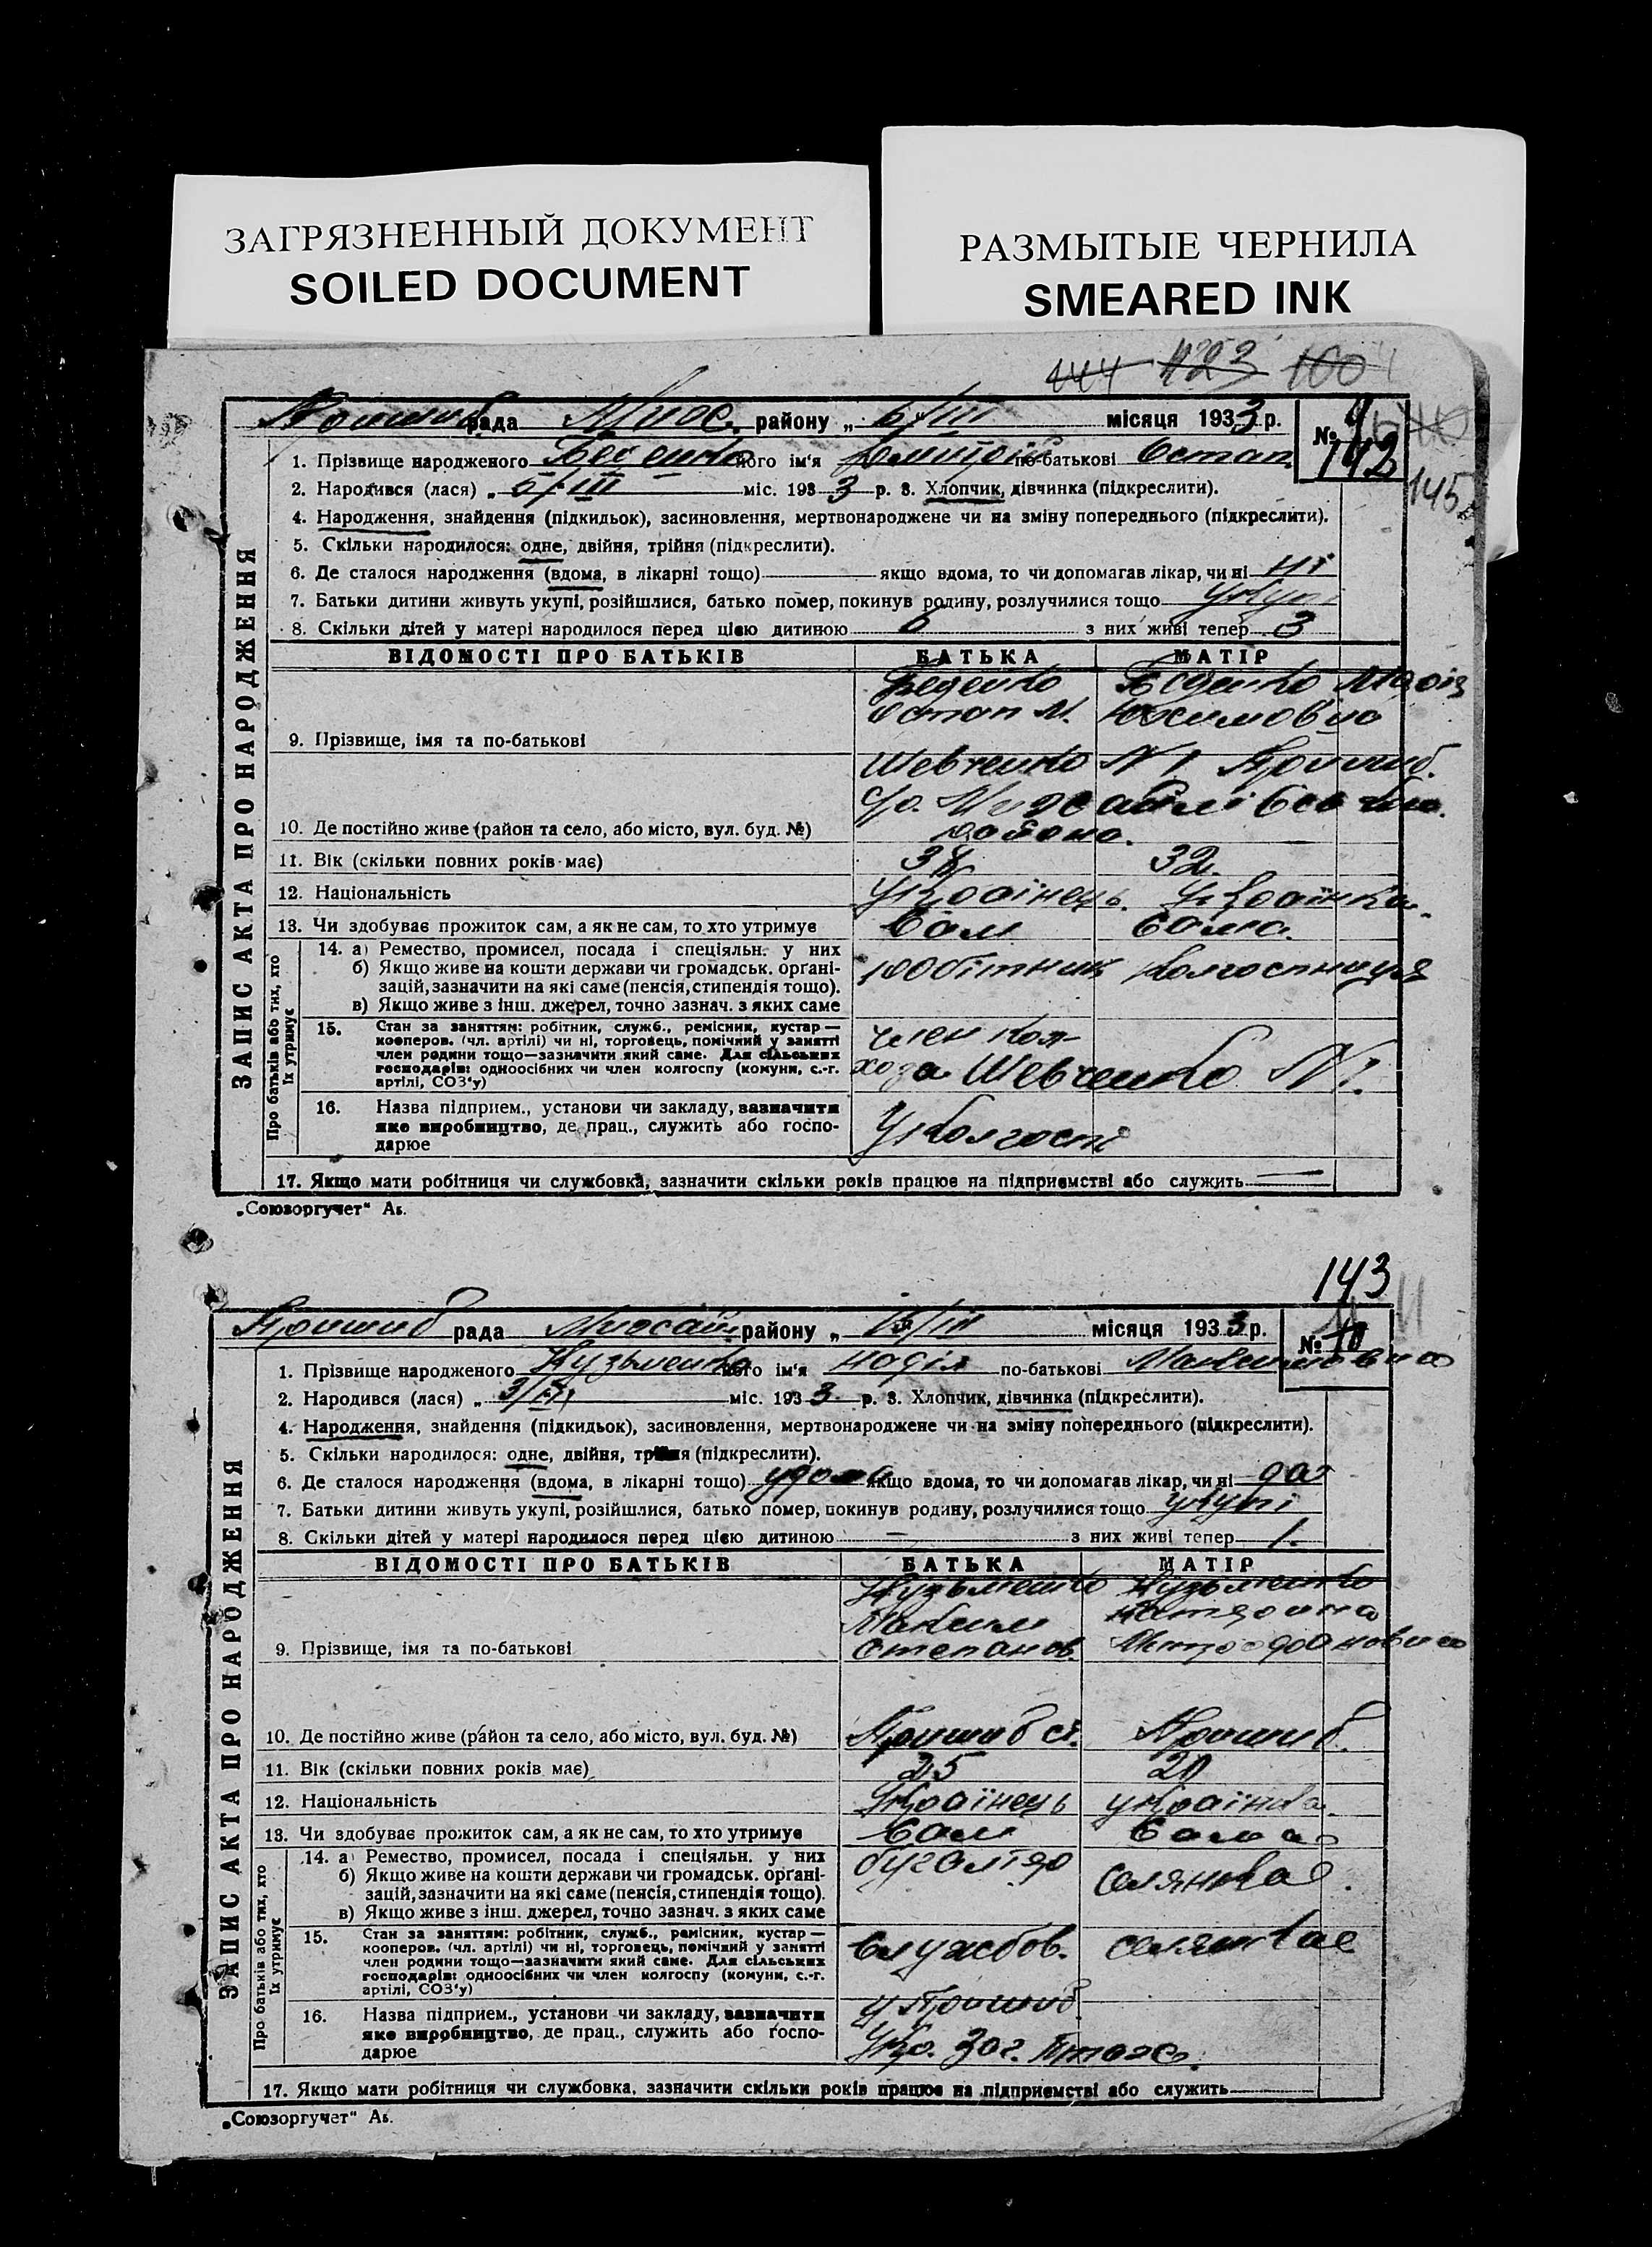 ЗАГРЯЗНЕННЫЙ ДОКУМЕНТ
SOILED DOCUMENT
РАЗМЫТЫЕ ЧЕРНИЛА
SMEARED INK
144 123 100
рада району „ 6/III місяця 1933 р.
№ 142
145
ЗАПИС АКТА ПРО НАРОДЖЕННЯ
1. Прізвище народженого його ім'я Дмитрій по-батькові Остап.
2. Народився (лася) „ 6/III міс. 1933 р. 3. Хлопчик, дівчинка (підкреслити).
4. Народження, знайдення (підкидьок), засиновлення, мертвонароджене чи на зміну попереднього (підкреслити).
5. Скільки народилося: одне, двійня, трійня (підкреслити).
6. Де сталося народження (вдома, в лікарні тощо) якщо вдома, то чи допомагав лікар, чи ні ні
7. Батьки дитини живуть укупі, розійшлися, батько помер, покинув родину, розлучилися тощо укупі
8. Скільки дітей у матері народилося перед цією дитиною 6 з них живі тепер 3
ВІДОМОСТІ ПРО БАТЬКІВ БАТЬКА МАТІР
9. Прізвище, імя та по-батькові
Остап М.
Шевченко № 1
10. Де постійно живе (район та село, або місто, вул. буд. №)
района.
11. Вік (скільки повних років має) 32.
12. Національність Українець. Українка.
13. Чи здобуває прожиток сам, а як не сам, то хто утримує Сам Сама.
Про батьків або тих, хто їх утримує
14. а) Ремество, промисел, посада і спеціяльн. у них
б) Якщо живе на кошти держави чи громадськ. органі-
зацій, зазначити на які саме (пенсія, стипендія тощо).
в) Якщо живе з інш. джерел, точно зазнач. з яких саме
робітник колгоспниця
15. Стан за заняттям: робітник, служб., ремісник, кустар —
кооперов. (чл. артілі) чи ні, торговець, помічний у занятті
член родини тощо—зазначити який саме. Для сільських
господарів: одноосібних чи член колгоспу (комуни, с.-г.
артілі, СОЗ'у)
член кол-
хоза Шевченко № 1.
16. Назва підприєм., установи чи закладу, зазначити
яке виробництво, де прац., служить або госпо-
дарює
У колгоспі
17. Якщо мати робітниця чи службовка, зазначити скільки років працює на підприємстві або служить —
„Союзоргучет“ Аь.
143
Пришиб рада району „ місяця 1933 р.
№ 10 11
ЗАПИС АКТА ПРО НАРОДЖЕННЯ
1. Прізвище народженого Кузьменко його ім'я Надія по-батькові Максимовна
2. Народився (лася) „ міс. 1933. р. 3. Хлопчик, дівчинка (підкреслити).
4. Народження, знайдення (підкидьок), засиновлення, мертвонароджене чи на зміну попереднього (підкреслити).
5. Скільки народилося: одне, двійня, трійня (підкреслити).
6. Де сталося народження (вдома, в лікарні тощо) удома якщо вдома, то чи допомагав лікар, чи ні да
7. Батьки дитини живуть укупі, розійшлися, батько помер, покинув родину, розлучилися тощо укупі
8. Скільки дітей у матері народилося перед цією дитиною — з них живі тепер 1.
ВІДОМОСТІ ПРО БАТЬКІВ БАТЬКА МАТІР
Кузьменко Кузьменко
Максим Катярина
9. Прізвище, імя та по-батькові Степанов.
10. Де постійно живе (район та село, або місто, вул. буд. №) Пришиб ст. Пришиб.
11. Вік (скільки повних років має) 25
12. Національність Українець українка.
13. Чи здобуває прожиток сам, а як не сам, то хто утримує Сам Сама
Про батьків або тих, хто їх утримує
14. а) Ремество, промисел, посада і спеціяльн. у них
б) Якщо живе на кошти держави чи громадськ. органі-
зацій, зазначити на які саме (пенсія, стипендія тощо).
в) Якщо живе з інш. джерел, точно зазнач. з яких саме
бугалтяр селянка.
15. Стан за заняттям: робітник, служб., ремісник, кустар —
кооперов. (чл. артілі) чи ні, торговець, помічний у занятті
член родини тощо—зазначити який саме. Для сільських
господарів: одноосібних чи член колгоспу (комуни, с.-г.
артілі, СОЗ'у)
службов. селянка
16. Назва підприєм., установи чи закладу, зазначити
яке виробництво, де прац., служить або госпо-
дарює
у Пришиб
17. Якщо мати робітниця чи службовка, зазначити скільки років працює на підприємстві або служить
„Союзоргучет“ Аь.